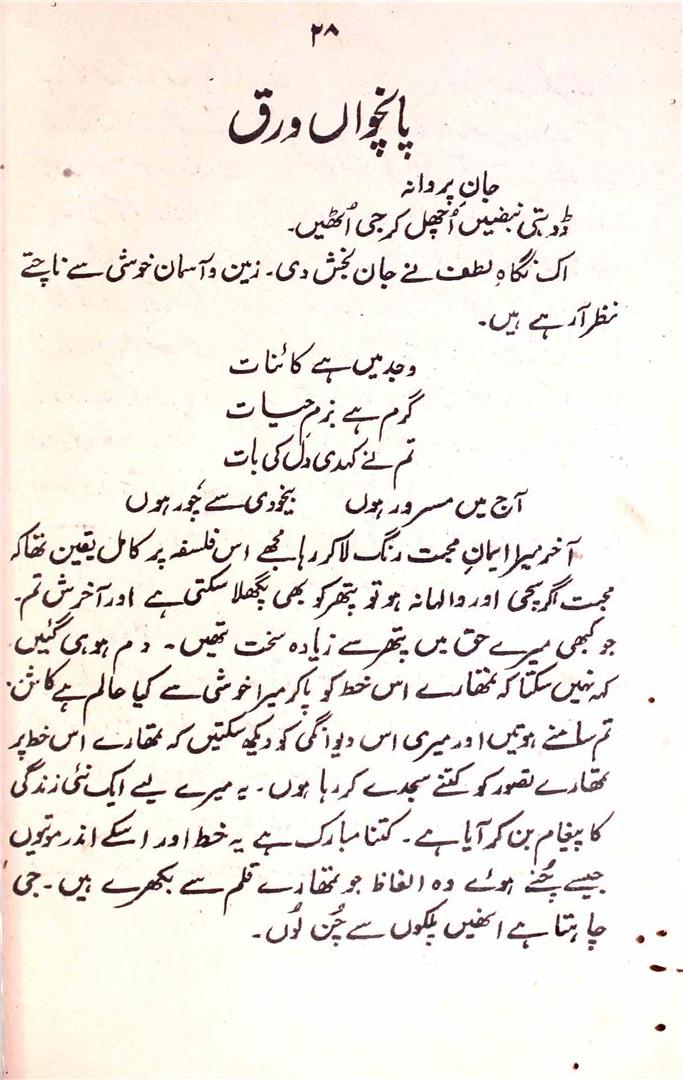 ۲۸
پانچواں ورق
جانِ پروانہ
ڈوبتی نبضیں اُچھل کر جی اُٹھیں۔
اک نگاہِ لطف نے جان بخش دی۔ زمین و آسمان خوشی سے ناچتے
نظر آرہے ہیں۔
وجد میں ہے کائنات
گرم ہے بزمِ حیات
تم نے کہدی دل کی بات
آج میں مسرور ہوں بیخودی سے چُور ہوں
آخر میرا ایمانِ محبت رنگ لا کر رہا مجھے اس فلسفہ پر کامل یقین تھا کہ
محبت اگر سچی اور والہانہ ہو تو پتھر کو بھی پگھلا سکتی ہے اور آخرش تم۔
جو کبھی میرے حق میں پتھر سے زیادہ سخت تھیں۔ رم ہو ہی گئیں
کہ نہیں سکتا کہ تمھارے اس خط کو پاکر میرا خوشی سے کیا عالم ہے کاش
تم سامنے ہوتیں اور میری اس دیوانگی کو دیکھ سکتیں کہ تمھارے اس خط پر
تمھارے تصور کو کتنے سجدے کر رہا ہوں۔ یہ میرے لیے ایک نئی زندگی
کا پیغام بن کر آیا ہے۔ کتنا مبارک ہے یہ خط اور اسکے اندر موتیوں
جیسے چُنے ہوئے وہ الفاظ جو تمھارے قلم سے بکھرے ہیں۔ جی
چاہتا ہے انھیں پلکوں سے چُن لُوں۔